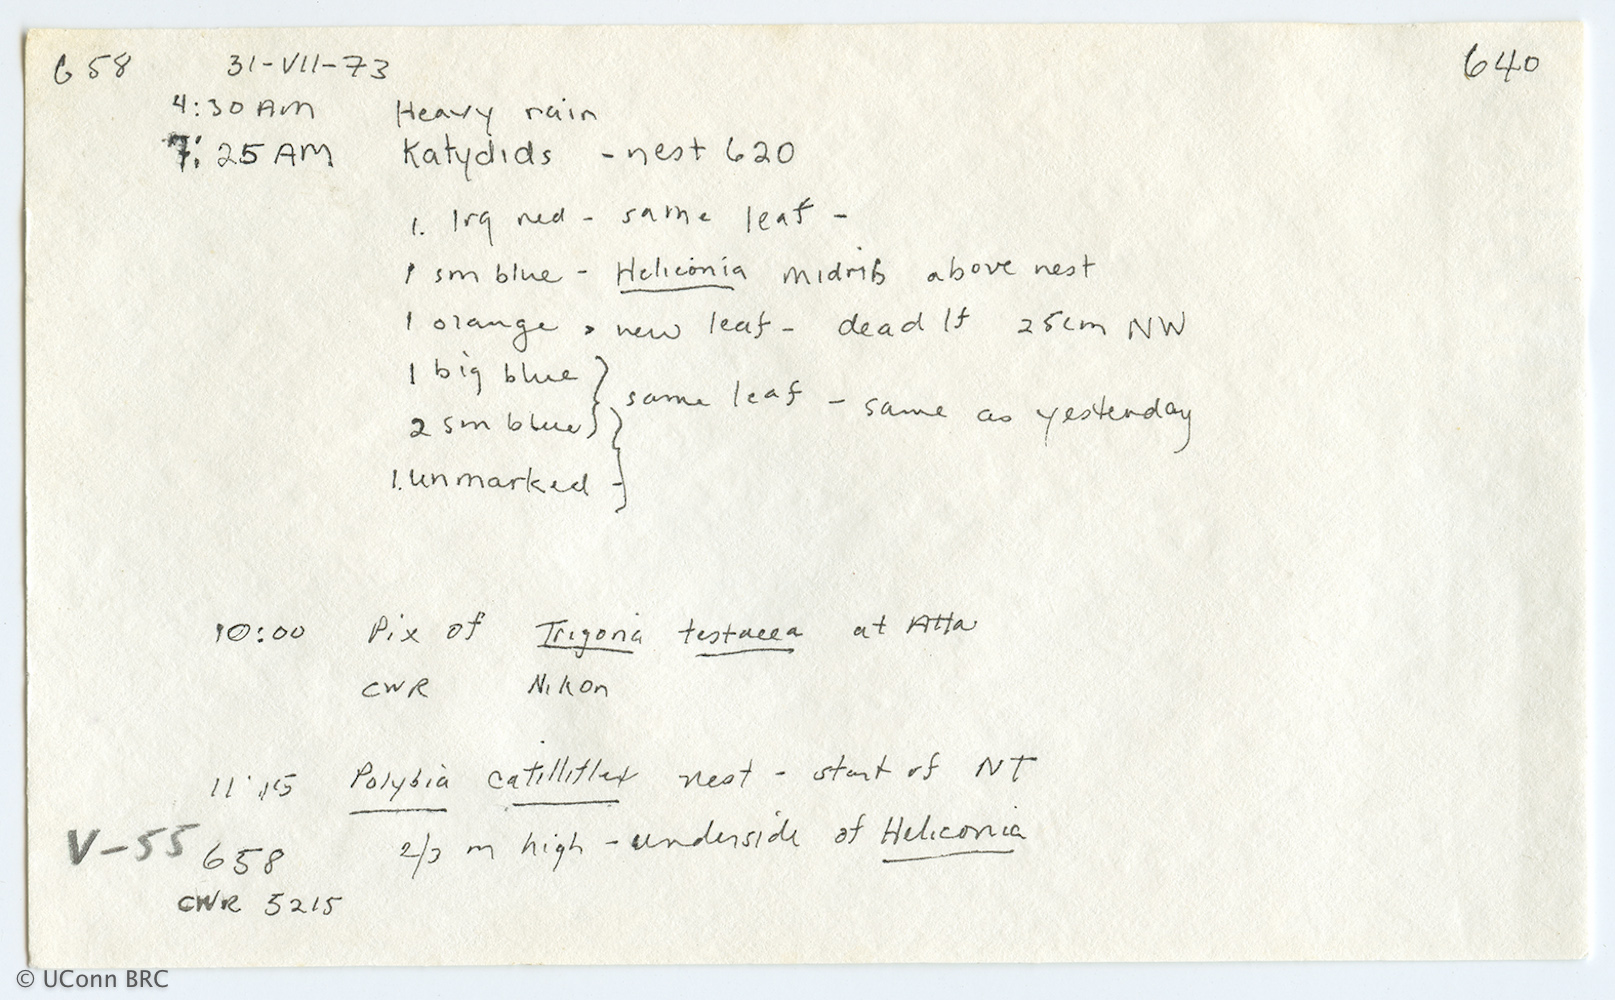 658 31-VII-73 640
4:30 AM Heavy rain
7:25 AM Katydids - nest 620
1. lrg red - same leaf -
1 sm blue - Heliconia midrib above nest
1 orange - new leaf - dead lf 25cm NW
1 big blue } same leaf - same as yesterday
2 sm blue }
1. unmarked -
10:00 Pix of Trigona testacea at Atta
CWR Nikon
11:15 Polybia catillifex nest - start of NT
V-55 658 2/3 m high - underside of Heliconia
CWR 5215
© UConn BRC